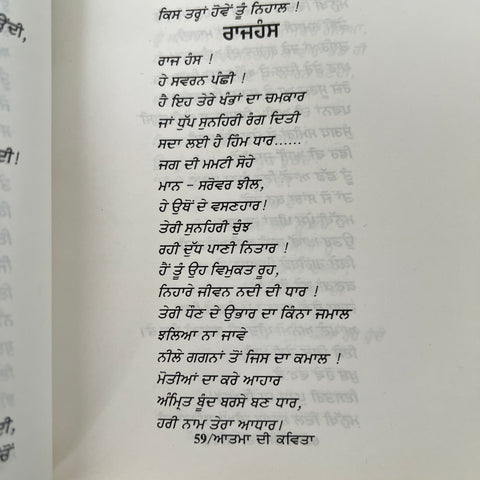 ਕਿਸ ਤਰ੍ਹਾਂ ਹੋਵੇਂ ਤੂੰ ਨਿਹਾਲ !
ਰਾਜਹੰਸ
ਰਾਜ ਹੰਸ !
ਹੇ ਸਵਰਨ ਪੰਛੀ !
ਹੈ ਇਹ ਤੇਰੇ ਖੰਭਾਂ ਦਾ ਚਮਕਾਰ
ਜਾਂ ਧੁੱਪ ਸੁਨਹਿਰੀ ਰੰਗ ਦਿਤੀ
ਸਦਾ ਲਈ ਹੈ ਹਿੰਮ ਧਾਰ......
ਜਗ ਦੀ ਮਮਟੀ ਸੋਹੇ
ਮਾਨ - ਸਰੋਵਰ ਝੀਲ,
ਹੇ ਉਥੋਂ ਦੇ ਵਸਣਹਾਰ!
ਤੇਰੀ ਸੁਨਹਿਰੀ ਚੁੰਝ
ਰਹੀ ਦੁੱਧ ਪਾਣੀ ਨਿਤਾਰ !
ਹੈਂ ਤੂੰ ਉਹ ਵਿਮੁਕਤ ਰੂਹ,
ਨਿਹਾਰੇ ਜੀਵਨ ਨਦੀ ਦੀ ਧਾਰ !
ਤੇਰੀ ਧੌਣ ਦੇ ਉਭਾਰ ਦਾ ਕਿੰਨਾ ਜਮਾਲ
ਝਲਿਆ ਨਾ ਜਾਵੇ
ਨੀਲੇ ਗਗਨਾਂ ਤੋਂ ਜਿਸ ਦਾ ਕਮਾਲ !
ਮੋਤੀਆਂ ਦਾ ਕਰੇ ਆਹਾਰ
ਅੰਮ੍ਰਿਤ ਬੂੰਦ ਬਰਸੇ ਬਣ ਧਾਰ,
ਹਰੀ ਨਾਮ ਤੇਰਾ ਆਧਾਰ।
59/ਆਤਮਾ ਦੀ ਕਵਿਤਾ